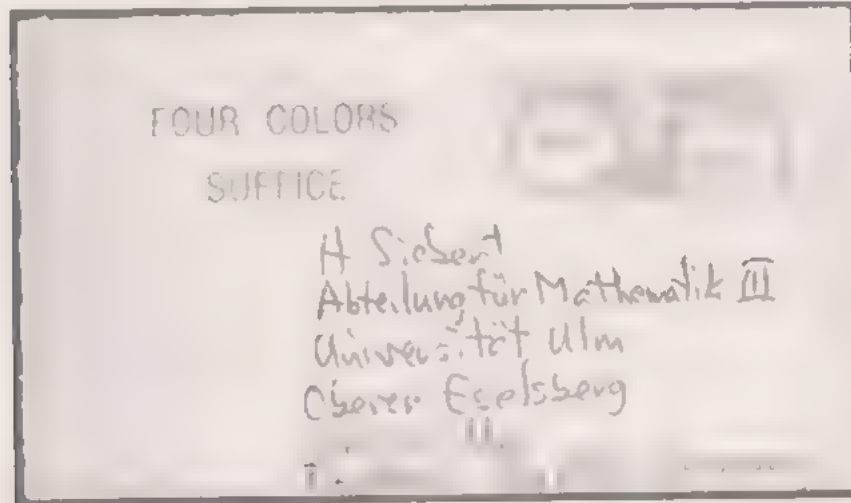 FOUR COLORS
SUFFICE
H Siebert
Abteilung für Mathematik III
Universität Ulm
Oberer Eselsberg